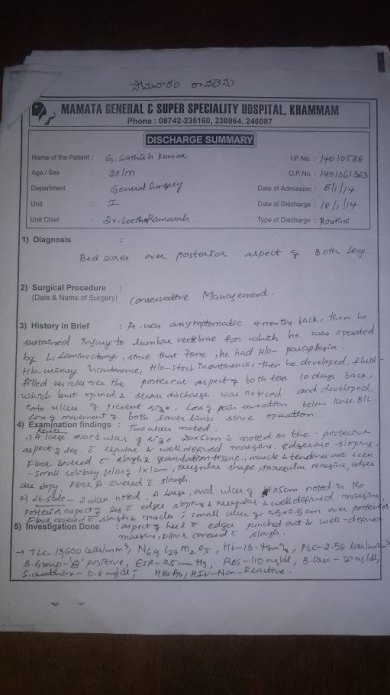 సోమవారం రావలెను
MAMATA GENERAL & SUPER SPECIALITY HOSPITAL, KHAMMAM
Phone : 08742-235160, 230864, 246087
DISCHARGE SUMMARY
Name of the Patient : G. Sathish Kumar I.P. No. : 14010588
Age / Sex : 30/M O.P. No. : 1401061363
Department : General Surgery Date of Admission : 8/1/14
Unit : II Date of Discharge : 18/1/14
Unit Chief : Dr. Seetha Ramaiah Type of Discharge : Routine
1) Diagnosis :
Bed sores over posterior aspect of Both legs
2) Surgical Procedure :
(Date & Name of Surgery) Conservative Management.
3) History in Brief : Pt. was asymptomatic 4 months back, then he
sustained injury to lumbar vertebrae for which he was operated
by Laminectomy, since that time, he had H/o- paraplegia.
H/o- urinary incontinence, H/o- stool incontinence, then he developed fluid-
filled vesicles over the posterior aspect of both legs 10 days back,
which burst opened & serous discharge was noticed and developed
into ulcer of present size. Loss pain sensation below knee B/L.
Loss of movement of both lower limbs since operation.
4) Examination findings : Two ulcers noted.
1) A large oval ulcer of size 20x5cm is noted in the posterior
aspect of leg & regular & well defined margins edges are sloping.
Floor covered & slough & granulation tissue, muscle & tendons are seen
- small solitary ulcer of 1x1cm, irregular shape, irregular margins, edges
are sloping, Floor is covered & slough.
2) Lt. side - 2 ulcers noted, A large, oval ulcer of x5cm noted in the
posterior aspect of leg & edges sloping & regular & well defined margins
Floor covered & slough & muscle; small ulcer of 0.5x0.5cm over posterior
5) Investigation Done : aspect of heel & edges punched out & well-defined
margins, Floor covered & slough.
→ TLC- 13600 cells/mm³, N69 L24 M2 E5, Hb- 13.4gm%, PLC- 2.58 lakhs/mm³
B. Group- 'B' positive, ESR- 25mm Hg, RBS- 110mg/dl, B. Urea- 20mg/dl,
S. creatinine- 0.8mg/dl, HBsAg, HIV- Non-Reactive.